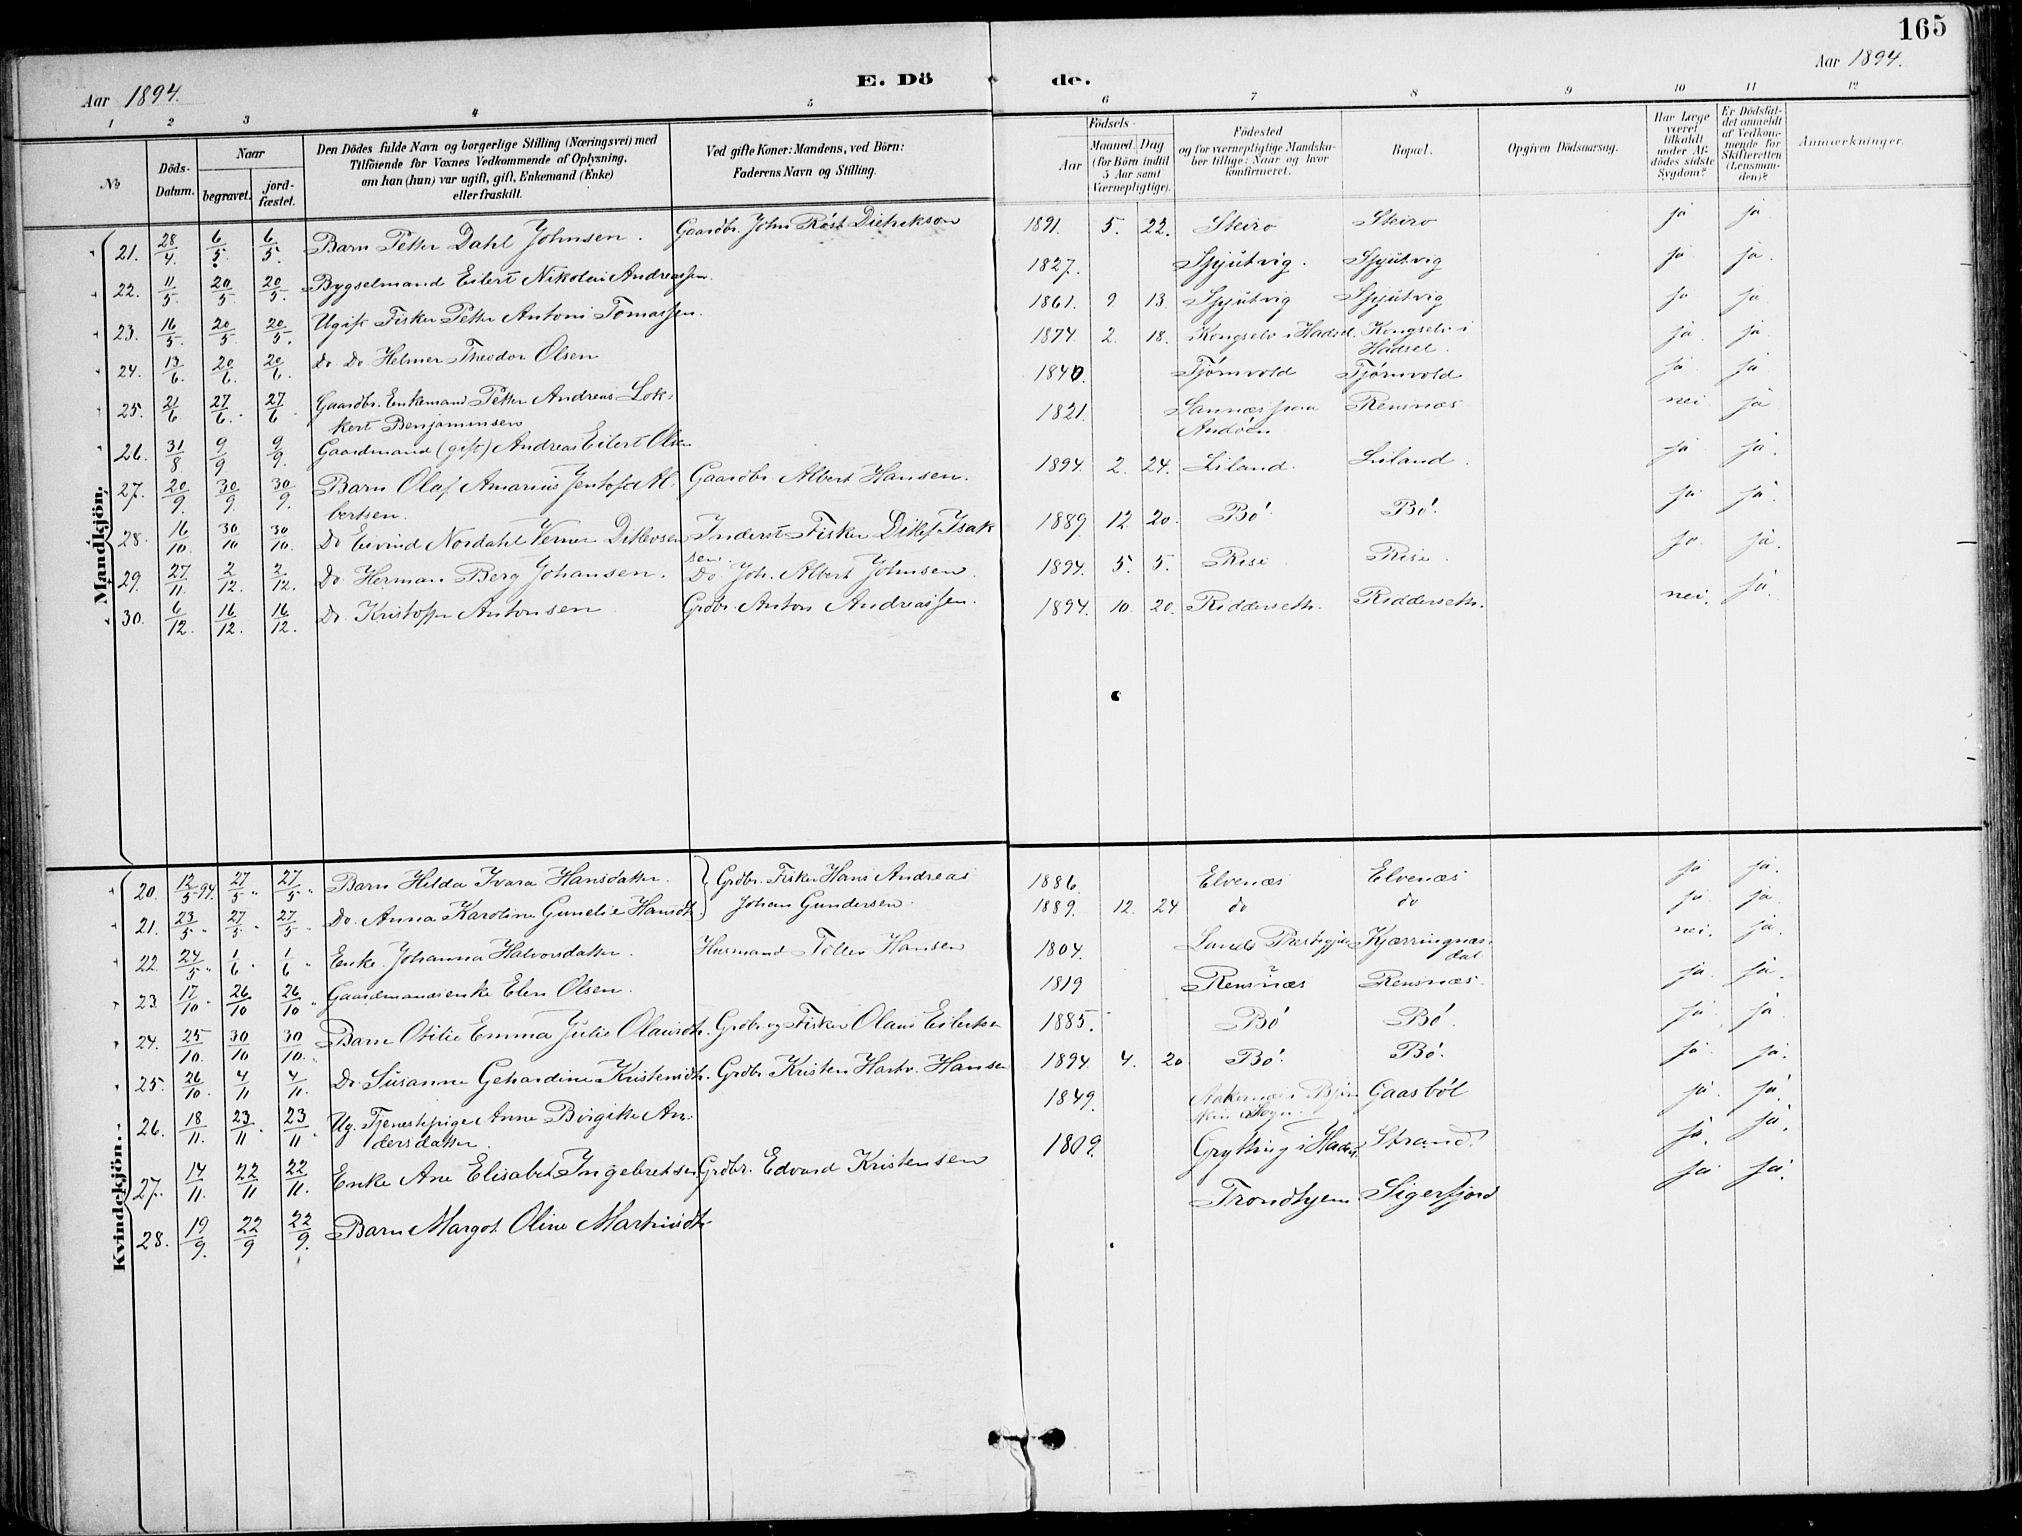 165
Aar 1894.
E. Dö de.
Aar 1894.
1 2 3 4 5 6 7 8 9 10 11 12
No
Döds-Datum.
Naar
begravet.
jord-fæstet.
Den Dödes fulde Navn og borgerlige Stilling (Næringsvei) med
Tilföiende for Voxnes Vedkommende af Oplysning,
om han (hun) var ugift, gift, Enkemand (Enke)
eller fraskilt.
Ved gifte Koner: Mandens, ved Börn:
Faderens Navn og Stilling.
Födsels-
Aar
Maaned. Dag
(for Börn indtil
5 Aar samt
Værnepligtige).
Födested
og for værnepligtige Mandska-
ber tillige: Naar og hvor
konfirmeret.
Bopæl.
Opgiven Dödsaarsag.
Har Læge
været
tilkaldt
under Af-
dödes sidste
Sygdom?
Er Dödsfal-
det anmeldt
af Vedkom-
mende for
Skifteretten
(Lensman-
den)?
Anmærkninger.
Mandkjön.
21. 28/4. 6/5. 6/5. Barn Petter Dahl Johnsen. Gaardbr. John Röst Diedrikson 1891. 5. 22. Steiro Steiro ja ja.
22. 11/5. 20/5. 20/5. Bygselmand Eilert Nikolai Andreassen. 1827. Spjutvig. Spjutvig ja. ja.
23. 16/5. 20/5. 20/5. Ugift Fisker Petter Antoni Tomassen. 1861. 9 13. Spjutvig Spjutvig ja ja.
24. 13/6. 20/6. 20/6. Do Do Helmer Theodor Olsen 1874. 2. 18. Kongselv i Hadsel. Kongselv i
Hadsel. ja. ja.
25. 21/6 27/6. 27/6. Gaardbr. Enkemand Petter Andreas Lok-
kert Benjaminsen 1840. Tjørnvold Tjørnvold ja. ja
26. 31/8 9/9 9/9. Gaardmand (gift) Andreas Eilert Olsen 1821. Sannæs paa
Andöen Rensnæs nei ja
27. 20/9. 30/9. 30/9. Barn Olaf Amarius Jentoft Al-
bertsen. Gaardbr. Albert Hansen. 1894. 2. 24. Liland. Liland. ja ja.
28. 16/10. 30/10 30/10. Do Eivind Nordahl Verner Ditlevsen Inderst Fisker Ditlef Isak
sen 1889. 12. 20. Bö. Bö. ja ja.
29. 27/11. 2/12. 2/12. Do Herman Berg Johansen. Do Joh. Albert Johnsen. 1894. 5. 5. Rise Rise. ja. ja.
30. 6/12. 16/12. 16/12. Do. Kristoffer Antonsen Grdbr. Anton Andreassen. 1894. 10. 20. Ridderseth. Ridderseth. nei. ja.
Kvindekjön.
20. 12/5-94. 27/5 27/5 Barn Hilda Ivara Hansdatter. Grdbr. Fisker Hans Andreas
Johan Gundersen. 1886. Elvenæs Elvenæs ja ja.
21. 23/5 27/5 27/5 Do. Anna Karoline Gunelie Hansdtr. 1889. 12. 24. do do ja. ja.
22. 24/5 1/6 1/6 Enke Johanna Halvorsdatter. Husmand Tollev Hansen 1804. Lands Præstegjæld Kjærringnæs-
dal nei. ja.
23 17/10 26/10 26/10 Gaardmandsenke Elen Olsen. 1819 Rensnæs Rensnæs. ja. ja.
24. 25/10. 30/10 30/10. Barn Otilie Emma Julie Olausdtr. Grdbr. og Fisker Olaus Eilertsen 1885. Bö Bö. ja ja.
25. 26/10. 4/11 4/11. Do. Susanne Gehardine Kristensdtr. Grdbr. Kristen Hartv. Hansen 1894 4. 20 Bö. Bö. ja ja.
26. 18/11. 23/11 23/11 Ug. Tjenestepige Anne Birgitte An-
dersdatter. 1849. Gaasböl ja. ja.
27. 14/11. 22/11 22/11. Enke Ane Elisabet Ingebretsen Grdbr. Edvard Kristensen 1809. Grytting i Hadsel Strand. ja. ja.
28. 19/9. 22/9 22/9. Barn Margot Oline Martinsdtr. Trondhjem Sigerfjord ja ja.